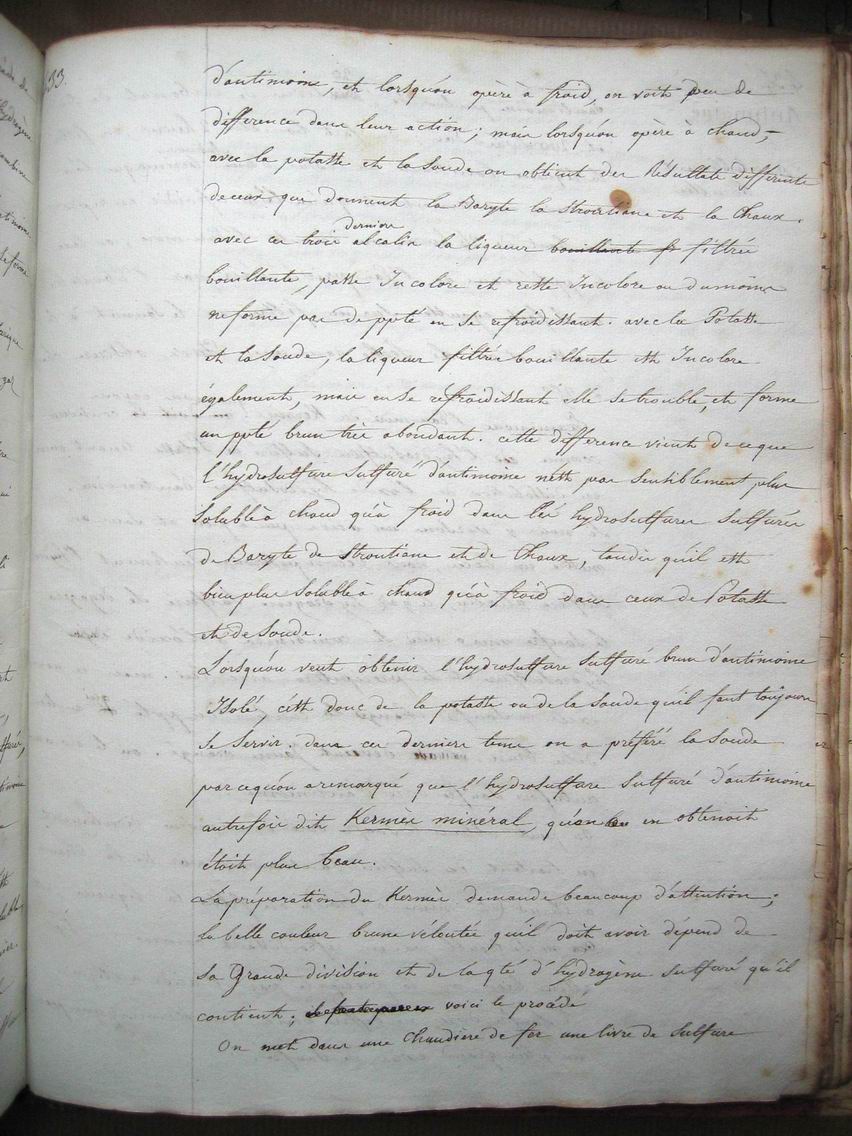 33.
d'antimoine, et lorsqu'on opère à froid, on voit peu de
difference dans leur action; mais lorsqu'on opère à chaud,
avec la potasse et la soude on obtient des Résultats differents
de ceux que donnent la Baryte la strontiane et la Chaux.
avec ces trois derniers alcalis la liqueur bouillante filtrée
bouillante, passe Incolore et reste Incolore ou du moins
ne forme pas de ppté en se refroidissant. avec la Potasse
et la Soude, la liqueur filtrée bouillante est Incolore
également, mais en se refroidissant elle se trouble, et forme
un ppté brun très abondant. cette difference vient de ce que
l'hydrosulfure sulfuré d'antimoine n'est pas sensiblement plus
soluble à chaud qu'à froid dans les hydrosulfures sulfurés
de Baryte de strontiane et de Chaux, tandis qu'il est
bien plus soluble à chaud qu'à froid dans ceux de Potasse
et de Soude.
Lorsqu'on veut obtenir l'hydrosulfure sulfuré brun d'antimoine
Isolé, c'est donc de la potasse ou de la soude qu'il faut toujours
se servir. dans ces derniers tems on a préféré la soude
parcequ'on a remarqué que l'hydrosulfure sulfuré d'antimoine
autrefois dit Kermès minéral, qu'on en obtenoit
étoit plus beau.
La préparation du Kermès demande beaucoup d'attention;
la belle couleur brune veloutée qu'il doit avoir dépend de
sa Grande division et de la qté d'hydrogène sulfuré qu'il
contient; voici le procédé
On met dans une chaudiere de fer une livre de sulfure